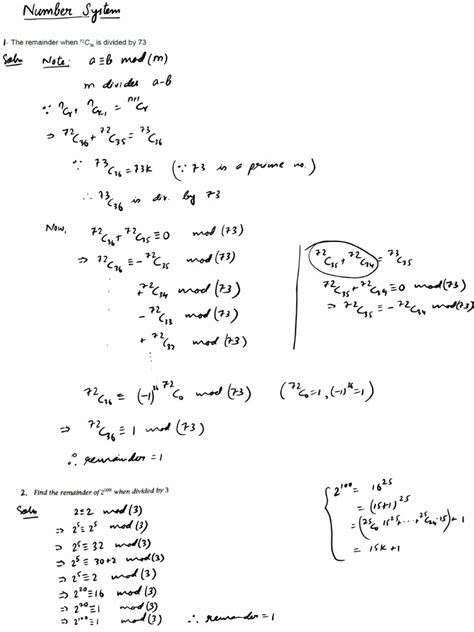 Number System
1- The remainder when ⁷²C₃₆ is divided by 73
Soln Note: a≡b mod(m)
m divides a-b
∵ ⁿCᵣ + ⁿCᵣ₋₁ = ⁿ⁺¹Cᵣ
⇒ ⁷²C₃₆ + ⁷²C₃₅ = ⁷³C₃₆
∵ ⁷³C₃₆ = 73K (∵ 73 is a prime no.)
∴ ⁷³C₃₆ is div. by 73
Now, ⁷²C₃₆ + ⁷²C₃₅ ≡ 0 mod(73)
⇒ ⁷²C₃₆ ≡ - ⁷²C₃₅ mod(73)
+ ⁷²C₃₄ mod(73)
- ⁷²C₃₃ mod(73)
+ ⁷²C₃₂ mod(73)
⁷²C₃₅ + ⁷²C₃₄ = ⁷³C₃₅
⁷²C₃₅ + ⁷²C₃₄ ≡ 0 mod(73)
⇒ ⁷²C₃₅ ≡ - ⁷²C₃₄ mod(73)
⁷²C₃₆ ≡ (-1)³⁶ ⁷²C₀ mod(73) (⁷²C₀=1, (-1)³⁶=1)
⇒ ⁷²C₃₆ ≡ 1 mod(73)
∴ remainder = 1
2. Find the remainder of 2¹⁰⁰ when divided by 3
Soln 2≡2 mod(3)
⇒ 2⁵≡2⁵ mod(3)
⇒ 2⁵≡32 mod(3)
⇒ 2⁵≡30+2 mod(3)
⇒ 2⁵≡2 mod(3)
⇒ 2²⁰≡16 mod(3)
⇒ 2²⁰≡1 mod(3)
⇒ 2¹⁰⁰≡1 mod(3) ∴ remainder = 1
2¹⁰⁰ = 16²⁵
= (15+1)²⁵
= 15K+1